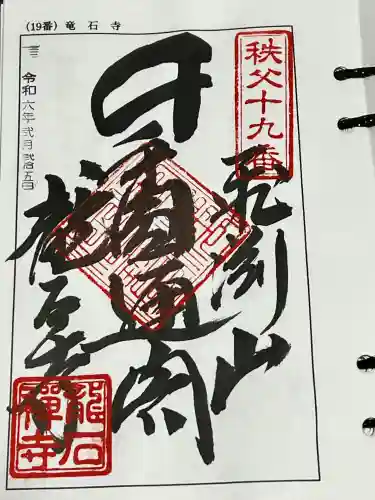 (19番) 竜石寺
秩父十九番
飛渕山
千手
圓通閣
龍石寺
令和六年弐月弐拾五日
龍石禅寺